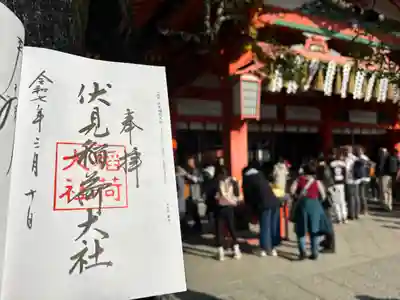 奉拝
伏見稲荷大社
稲荷
大社
令和七年三月十日